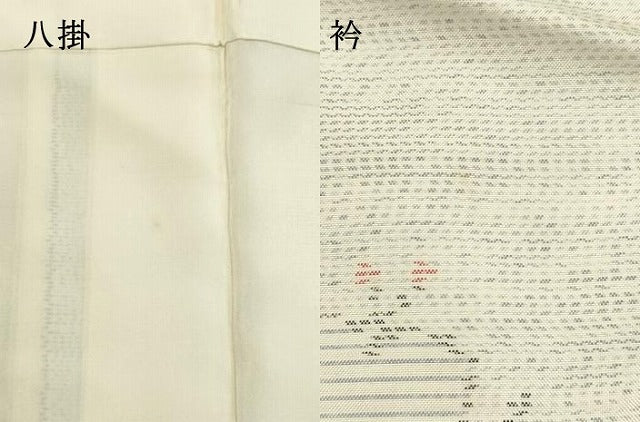 八掛
衿